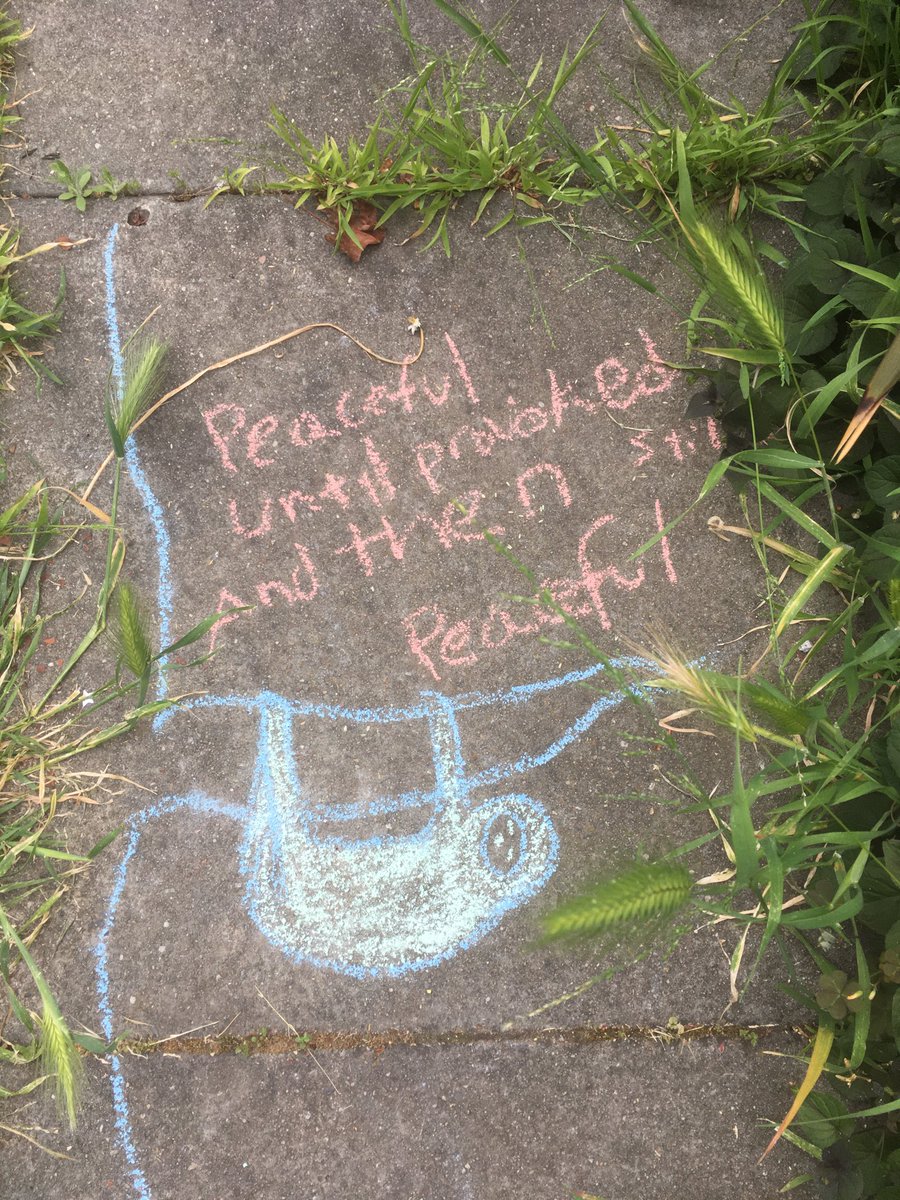 Peaceful
until provoked
And then still
Peaceful